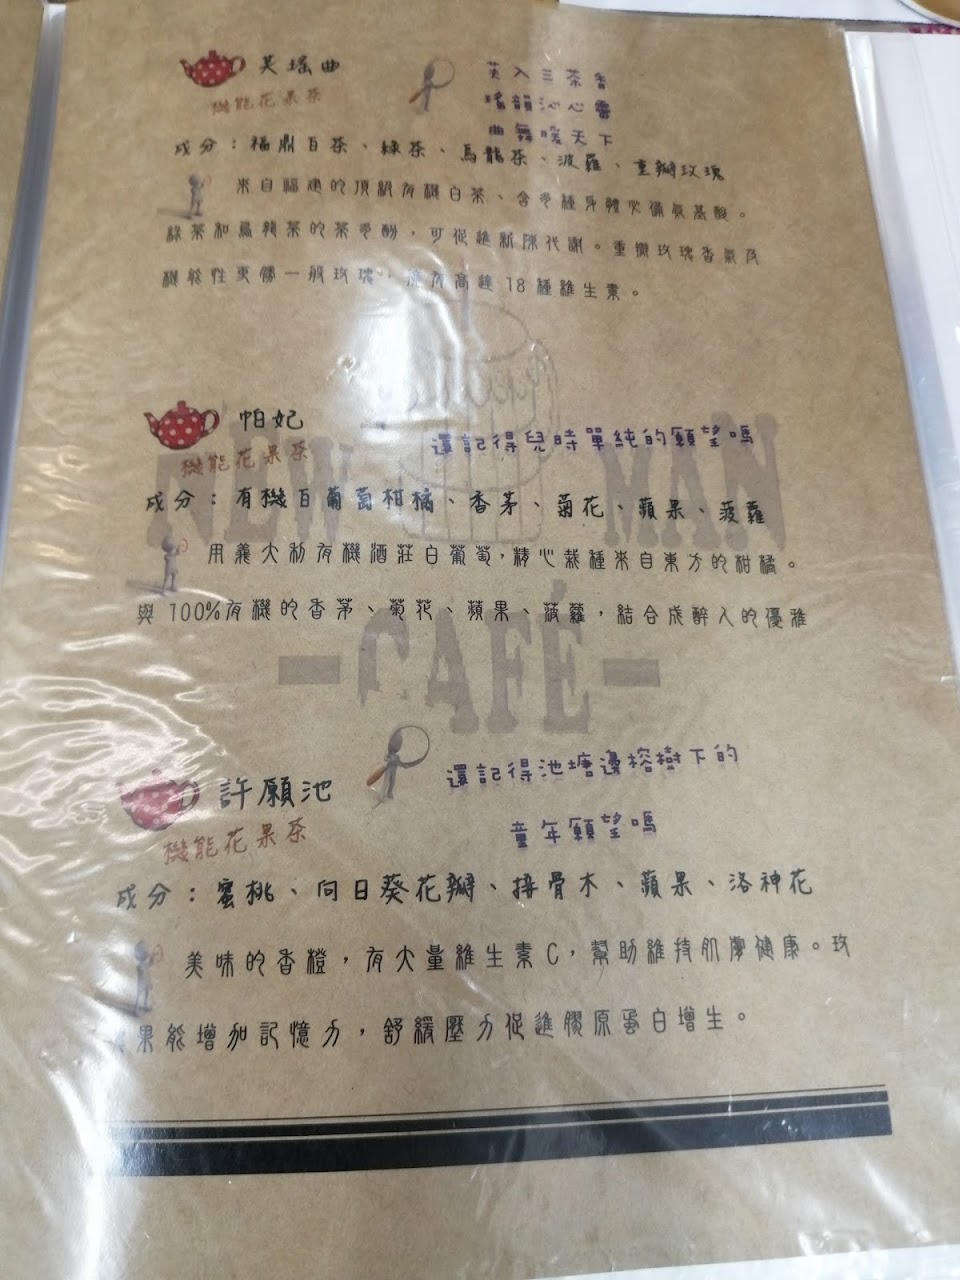 芙瑤曲
機能花果茶
芙入三茶香
瑤韻沁心靈
曲舞暖天下
成分：福鼎百茶、綠茶、烏龍茶、波蘿、重瓣玫瑰
來自福建的頂級有機白茶、含多種身體必備氨基酸。
綠茶和烏龍茶的茶多酚，可促進新陳代謝。重瓣玫瑰香氣及
機能性更勝一般玫瑰，擁有高達18種維生素。
帕妃
機能花果茶
還記得兒時單純的願望嗎
成分：有機百葡萄柑橘、香茅、菊花、蘋果、菠蘿
用義大利有機酒莊白葡萄，精心栽種來自東方的柑橘。
與100%有機的香茅、菊花、蘋果、菠蘿，結合成醉人的優雅
NEW MAN
-CAFÉ-
許願池
機能花果茶
還記得池塘邊榕樹下的
童年願望嗎
成分：蜜桃、向日葵花瓣、接骨木、蘋果、洛神花
美味的香橙，有大量維生素C，幫助維持肌膚健康。玫
果能增加記憶力，舒緩壓力促進膠原蛋白增生。